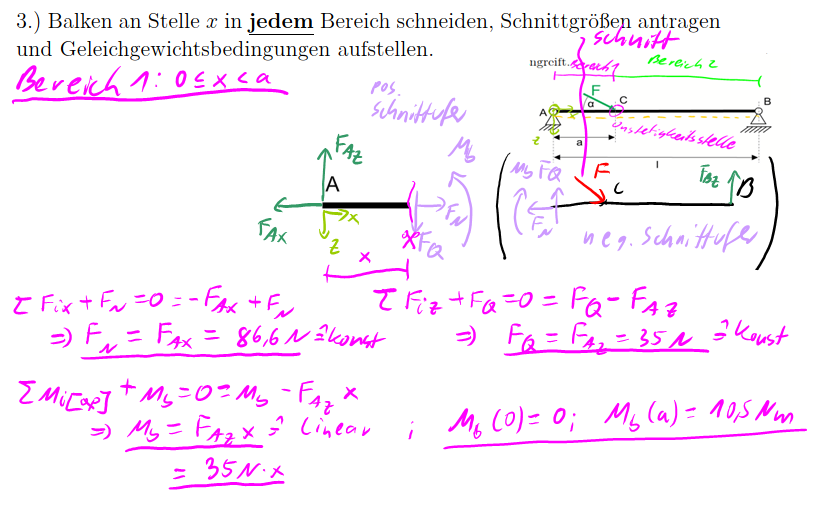 3.) Balken an Stelle x in jedem Bereich schneiden, Schnittgrößen antragen
und Geleichgewichtsbedingungen aufstellen.
Schnitt
ngreift.
Bereich 1
Bereich 2
Bereich 1: 0 ≤ x < a
pos.
Schnittufer
F
α
C
A
B
z
a
l
Unstetigkeitsstelle
F_Az
A
F_Ax
x
z
x
M_b
F_N
F_Q
M_b F_Q
F_N
F
C
F_Bz
B
neg. Schnittufer
Σ F_ix + F_N = 0 = -F_Ax + F_N
⇒ F_N = F_Ax = 86,6 N ≙ konst
Σ F_iz + F_Q = 0 = F_Q - F_Az
⇒ F_Q = F_Az = 35 N ≙ konst
Σ M_i[ap] + M_b = 0 = M_b - F_Az x
⇒ M_b = F_Az x ≙ linear ; M_b (0) = 0; M_b (a) = 10,5 Nm
= 35 N · x